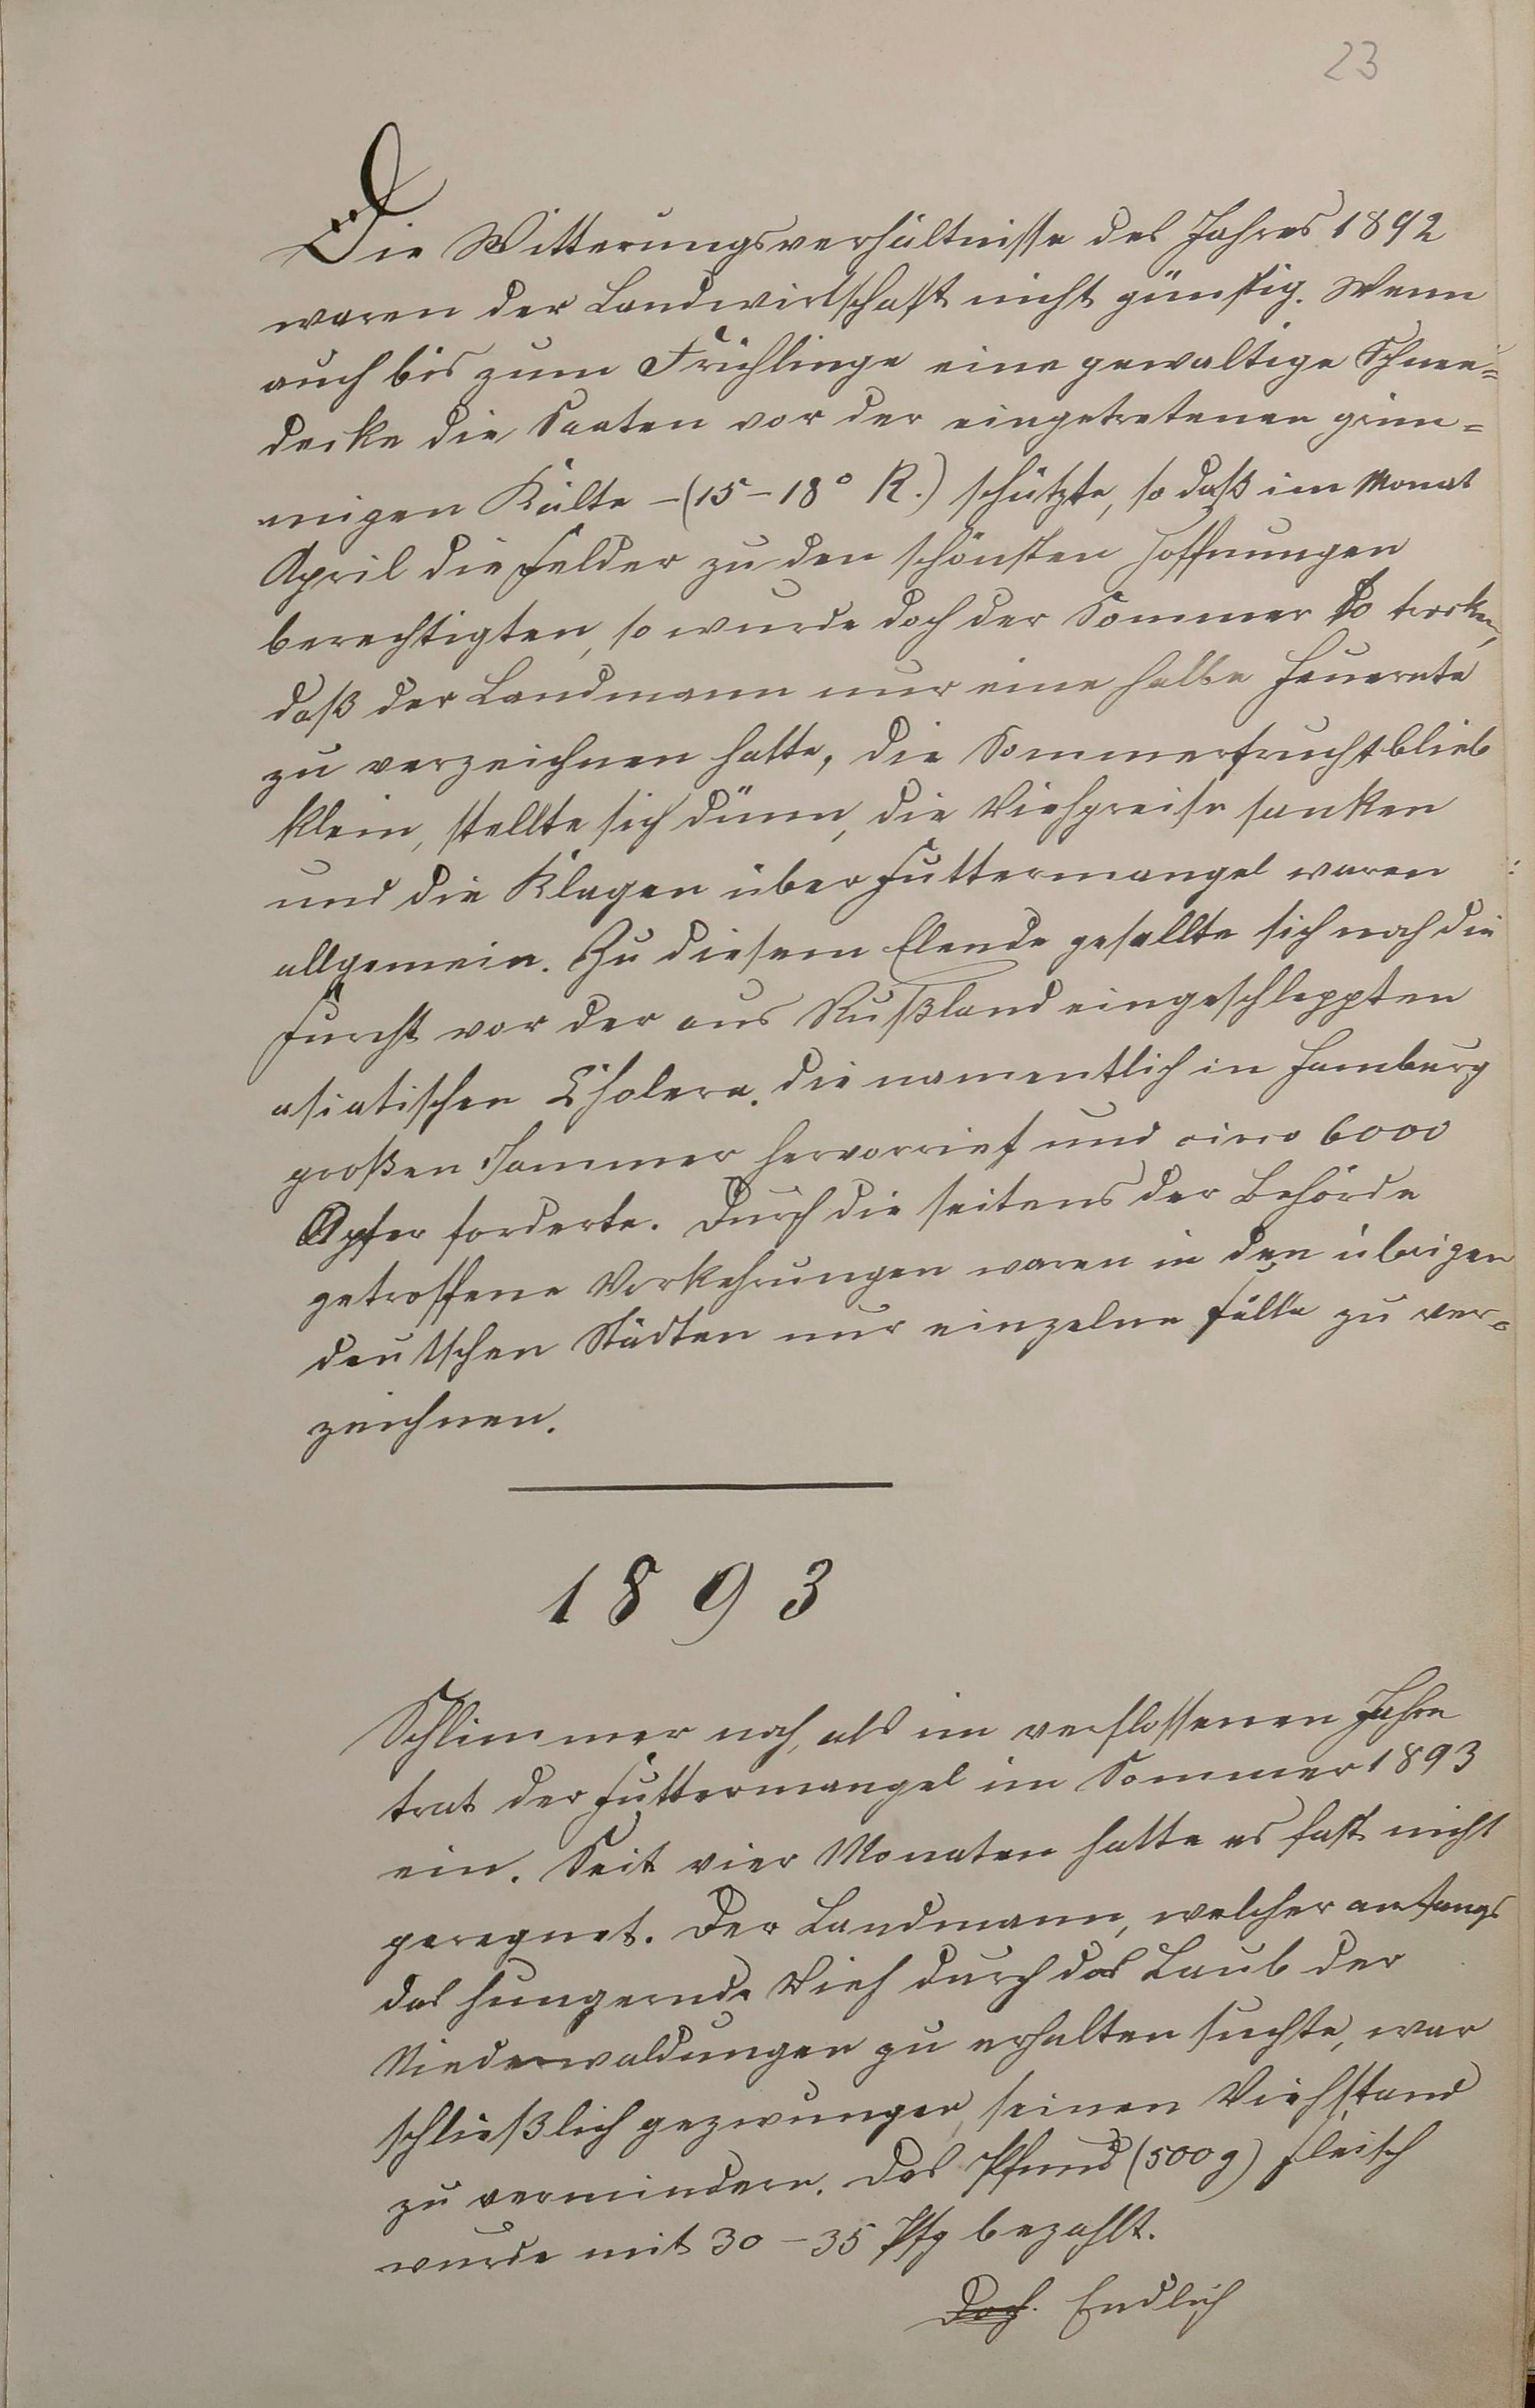 23
Die Witterungsverhältnisse des Jahres 1892
waren der Landwirtschaft nicht günstig. Wenn
auch bis zum Frühlinge eine gewaltige Schnee=
decke die Saaten vor der eingetretenen grim=
migen Kälte – (15 – 18° R.) schützte, so daß im Monat
April die Felder zu den schönsten Hoffnungen
berechtigten, so wurde doch der Sommer so trocken,
daß der Landmann nur eine halbe Heuernte
zu verzeichnen hatte, die Sommerfrucht blieb
klein, stellte sich dünn, die Viehpreise sanken
und die Klagen über Futtermangel waren
allgemein. Zu diesem Elende gesellte sich noch die
Furcht vor der aus Rußland eingeschleppten
asiatischen Cholera, die namentlich in Hamburg
großen Jammer hervorrief und circa 6000
Opfer forderte. Durch die seitens der Behörde
getroffene Vorkehrungen waren in den übrigen
deutschen Städten nur einzelne Fälle zu ver=
zeichnen.
1893
Schlimmer noch, als im verflossenen Jahre
trat der Futtermangel im Sommer 1893
ein. Seit vier Monaten hatte es fast nicht
geregnet. Der Landmann, welcher anfangs
das hungernde Vieh durch das Laub der
Niederwaldungen zu erhalten suchte, war
schließlich gezwungen, seinen Viehstand
zu vermindern. Das Pfund (500 g) Fleisch
wurde mit 30 – 35 Pfg bezahlt.
Doch. Endlich